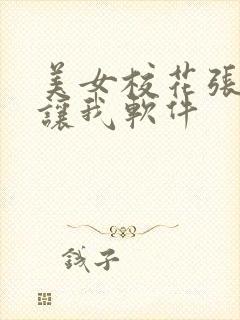 美女校花張
讓我軟件
錢子